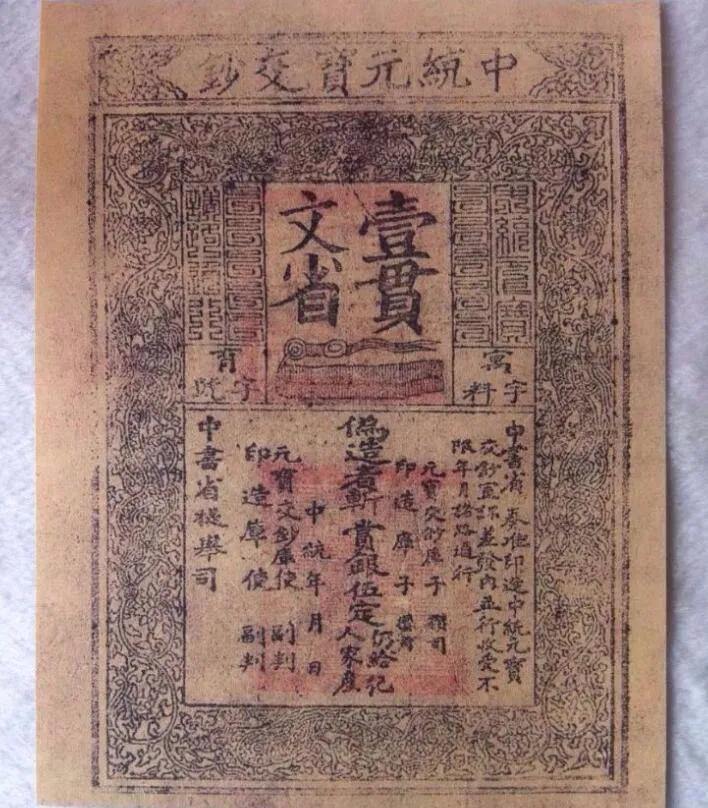 中統元寶交鈔
壹貫
文省
字料
字號
中書省奏准印造中統元寶
交鈔宣課差發內並行收受不
限年月諸路通行
元寶交鈔庫子 攢司
印造庫子 攢司
偽造者斬賞銀伍定仍給犯
人家產
中統年月日
元寶交鈔庫使 副判
印造庫使 副判
中書省提舉司